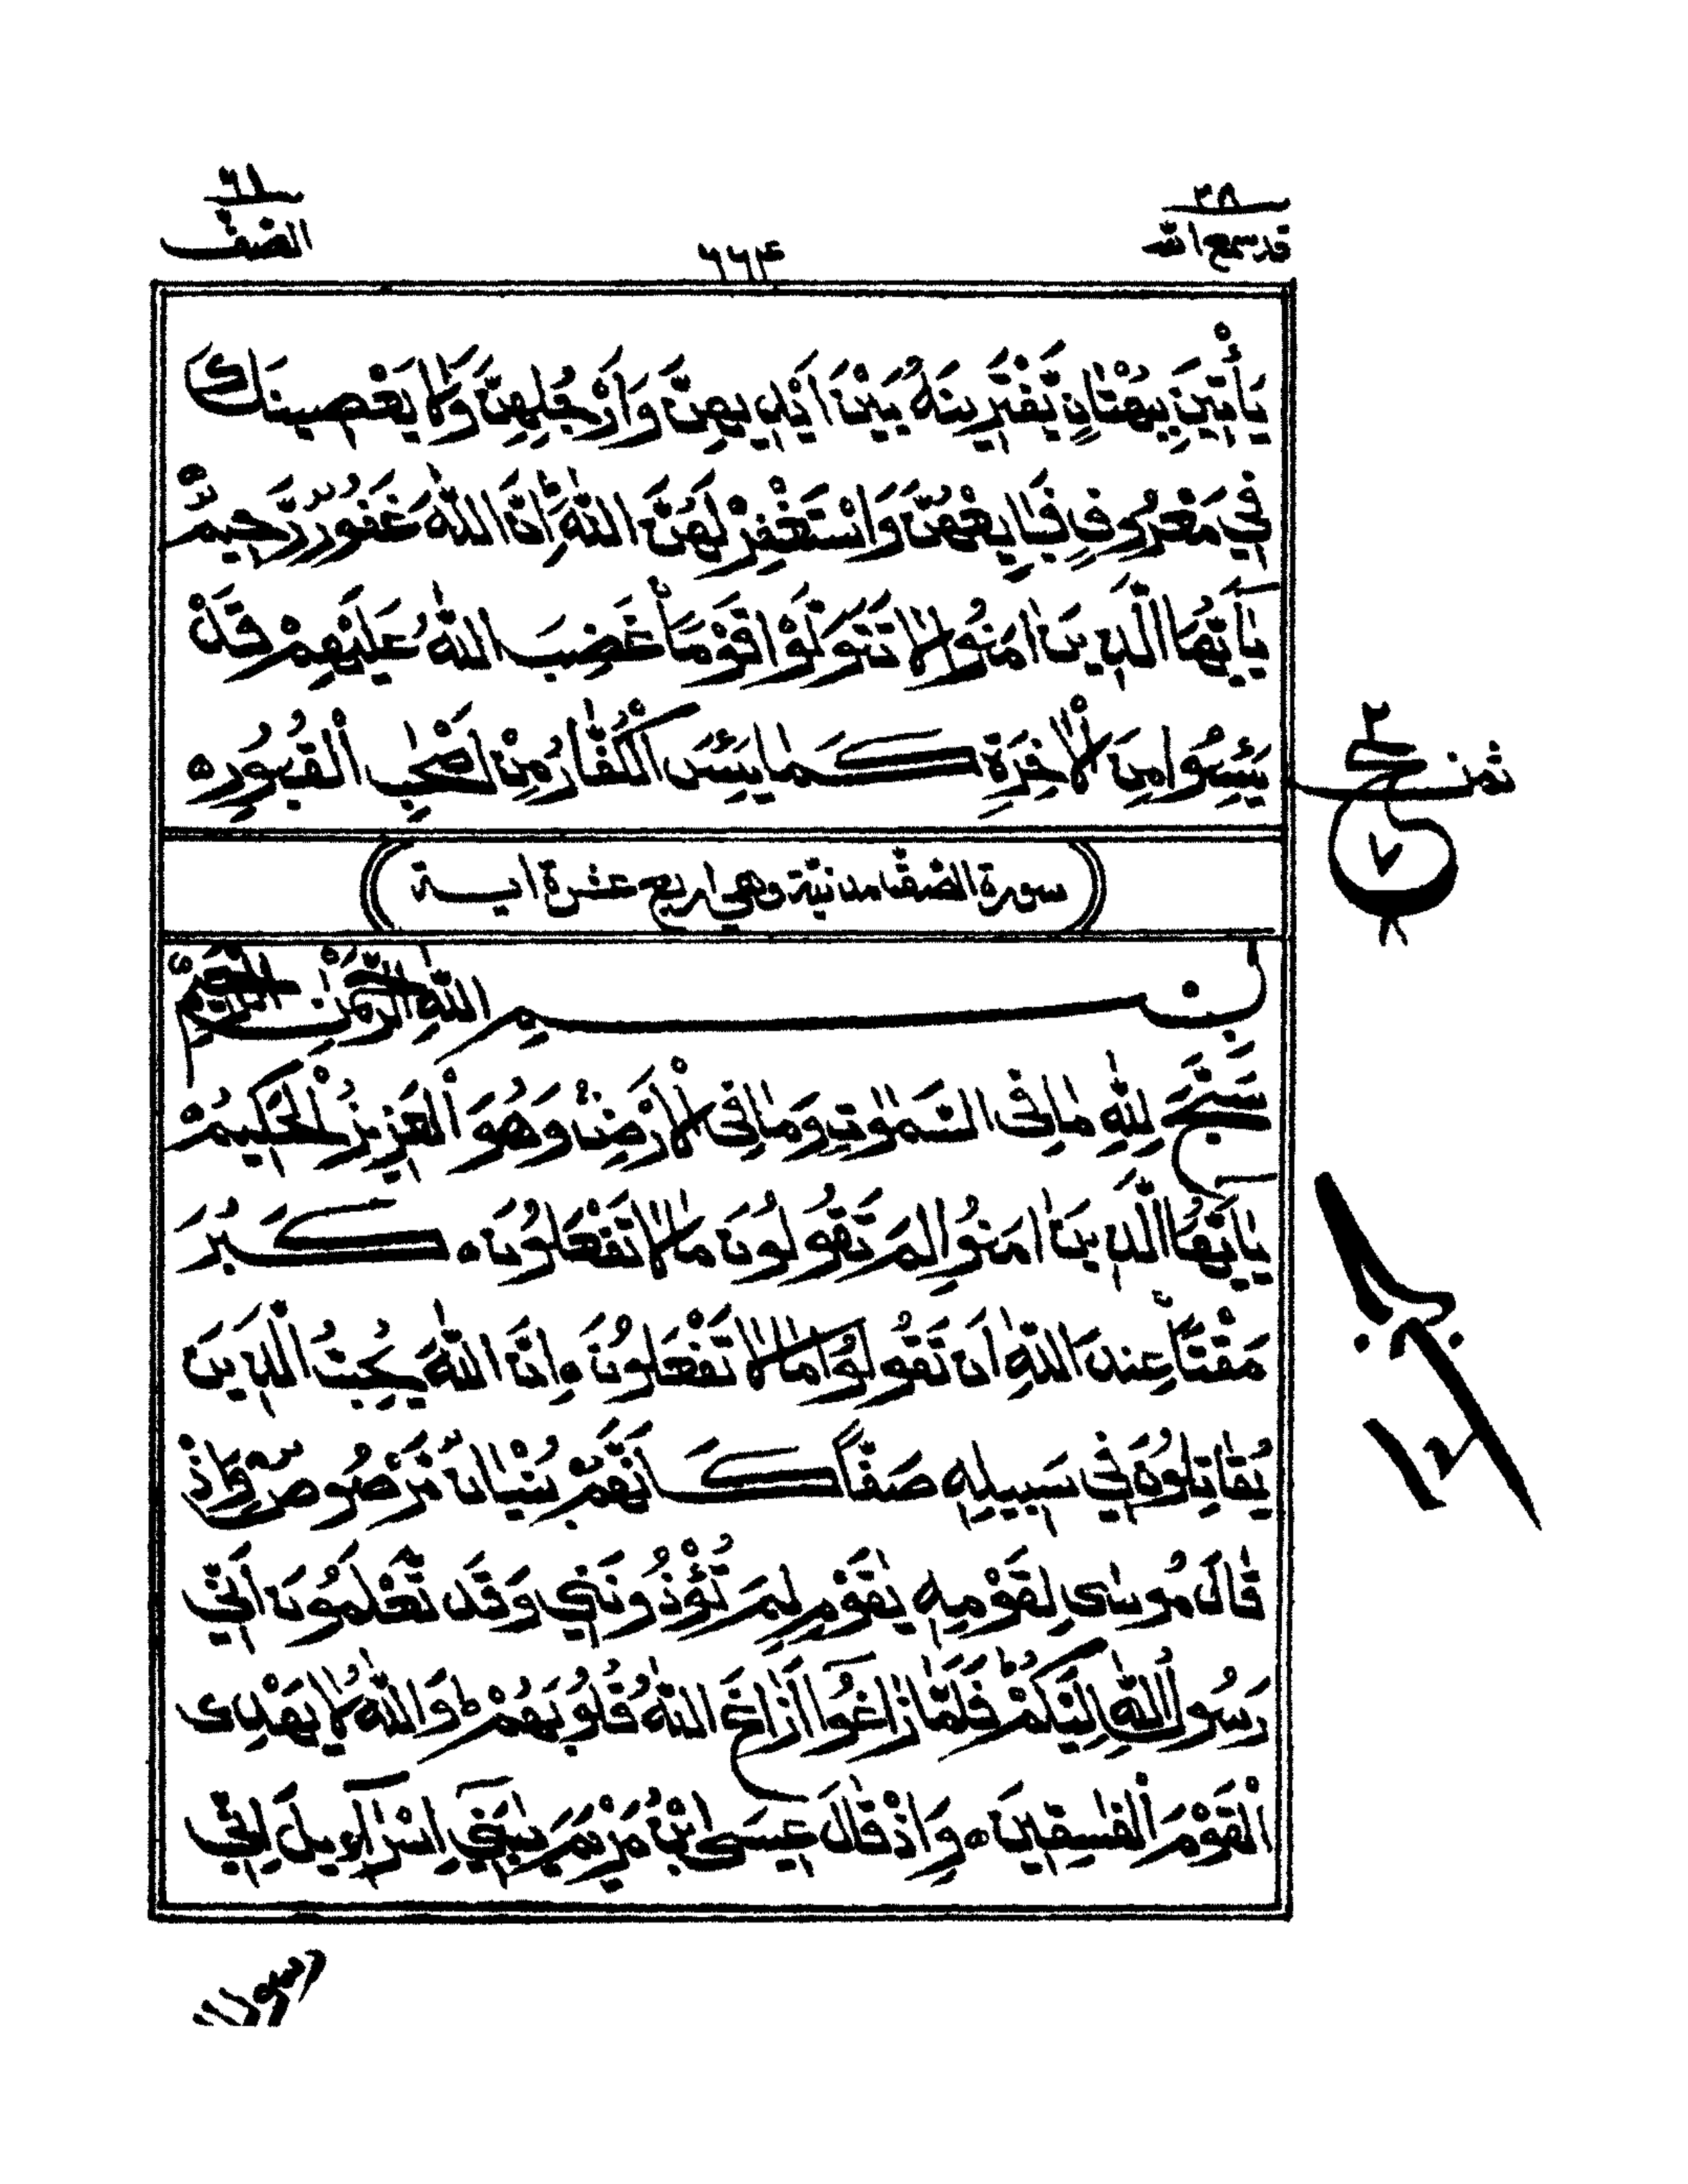 ۲۸
قد سمع الله
۶۶۴
۶۱
الصف
يَأْتِيْنَ بِبُهْتَانٍ يَّفْتَرِيْنَهُ بَيْنَ اَيْدِيْهِنَّ وَاَرْجُلِهِنَّ وَلَا يَعْصِيْنَكَ
فِيْ مَعْرُوْفٍ فَبَايِعْهُنَّ وَاسْتَغْفِرْ لَهُنَّ اللّٰهَ ؕ اِنَّ اللّٰهَ غَفُوْرٌ رَّحِيْمٌ
يٰۤاَيُّهَا الَّذِيْنَ اٰمَنُوْا لَا تَتَوَلَّوْا قَوْمًا غَضِبَ اللّٰهُ عَلَيْهِمْ قَدْ
يَئِسُوْا مِنَ الْاٰخِرَةِ كَمَا يَئِسَ الْكُفَّارُ مِنْ اَصْحٰبِ الْقُبُوْرِ ه
ثمن
ع
۲
۷
۸
سورة الصف مدنية وهي اربع عشرة اية
بسم اللّٰهِ الرَّحْمٰنِ الرَّحِيْمِ
سَبَّحَ لِلّٰهِ مَا فِى السَّمٰوٰتِ وَمَا فِى الْاَرْضِ ۚ وَهُوَ الْعَزِيْزُ الْحَكِيْمُ
يٰۤاَيُّهَا الَّذِيْنَ اٰمَنُوْا لِمَ تَقُوْلُوْنَ مَا لَا تَفْعَلُوْنَ ه كَبُرَ
مَقْتًا عِنْدَ اللّٰهِ اَنْ تَقُوْلُوْا مَا لَا تَفْعَلُوْنَ ه اِنَّ اللّٰهَ يُحِبُّ الَّذِيْنَ
يُقَاتِلُوْنَ فِيْ سَبِيْلِهٖ صَفًّا كَاَنَّهُمْ بُنْيَانٌ مَّرْصُوْصٌ وَاِذْ
قَالَ مُوْسٰى لِقَوْمِهٖ يٰقَوْمِ لِمَ تُؤْذُوْنَنِيْ وَقَدْ تَّعْلَمُوْنَ اَنِّيْ
رَسُوْلُ اللّٰهِ اِلَيْكُمْ ؕ فَلَمَّا زَاغُوْۤا اَزَاغَ اللّٰهُ قُلُوْبَهُمْ ؕ وَاللّٰهُ لَا يَهْدِى
الْقَوْمَ الْفٰسِقِيْنَ ه وَاِذْ قَالَ عِيْسَى ابْنُ مَرْيَمَ يٰبَنِيْۤ اِسْرَآءِيْلَ اِنِّيْ
رسول الله